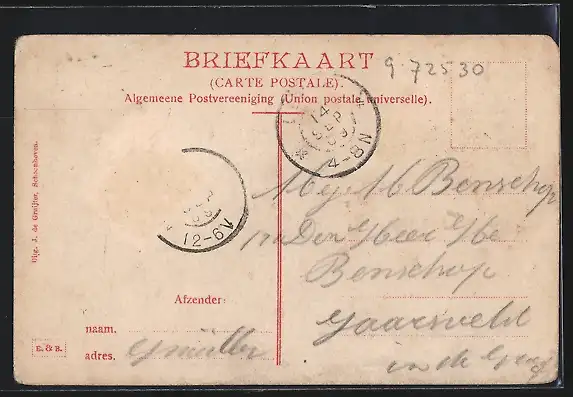 BRIEFKAART
(CARTE POSTALE).
Algemeene Postvereeniging (Union postale universelle).
9.72530
14
SEP
09
4-8N
09
12-6V
Uitg. J. de Gruijter, Schoonhoven.
Benschop
Benschop
Jaarsveld
in de
Afzender:
naam,
adres, GMüller
E. & B.